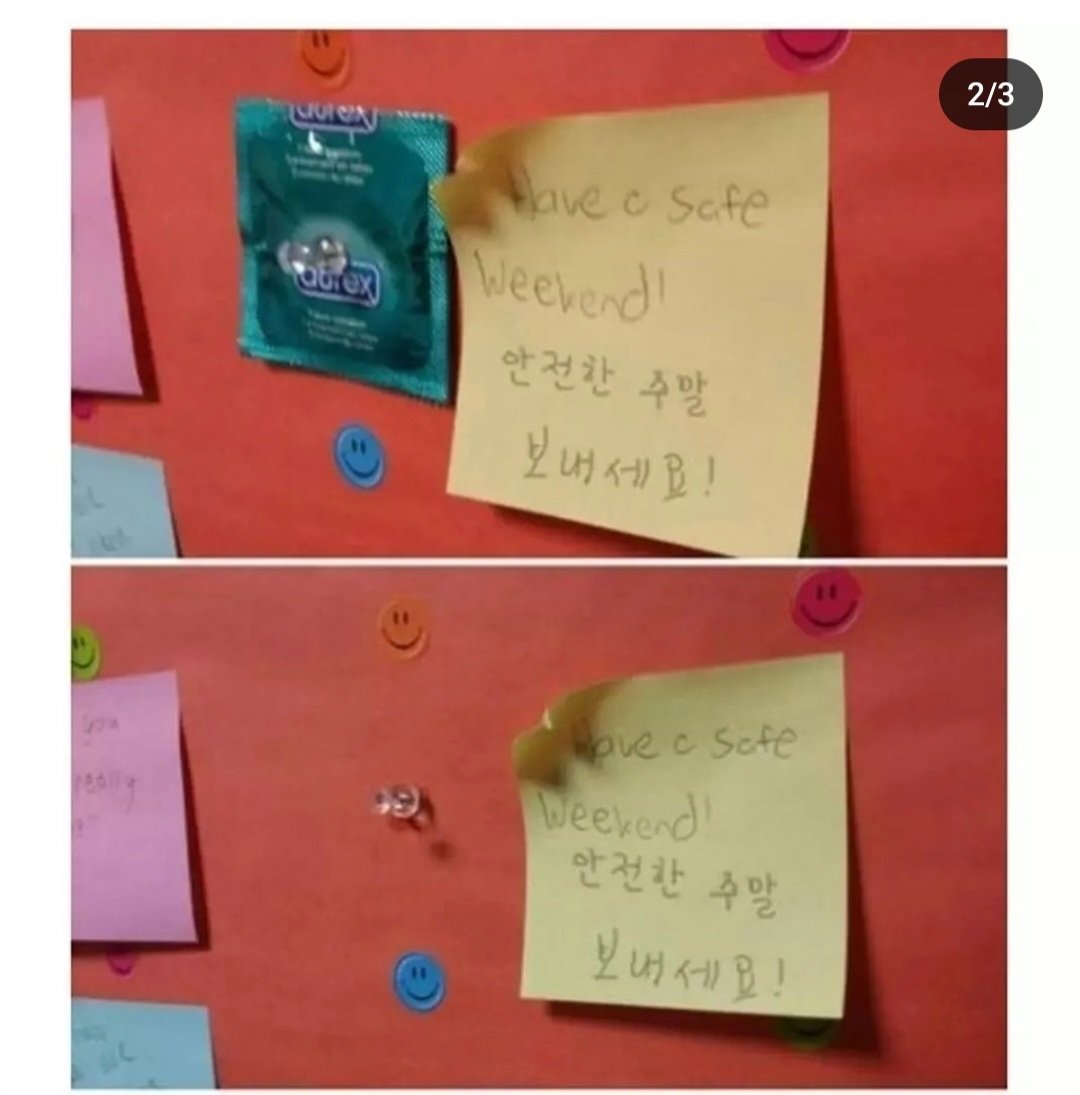 2/3
durex
durex
Have a safe
Weekend!
안전한 주말
보내세요!
you
really
Have a safe
Weekend!
안전한 주말
보내세요!